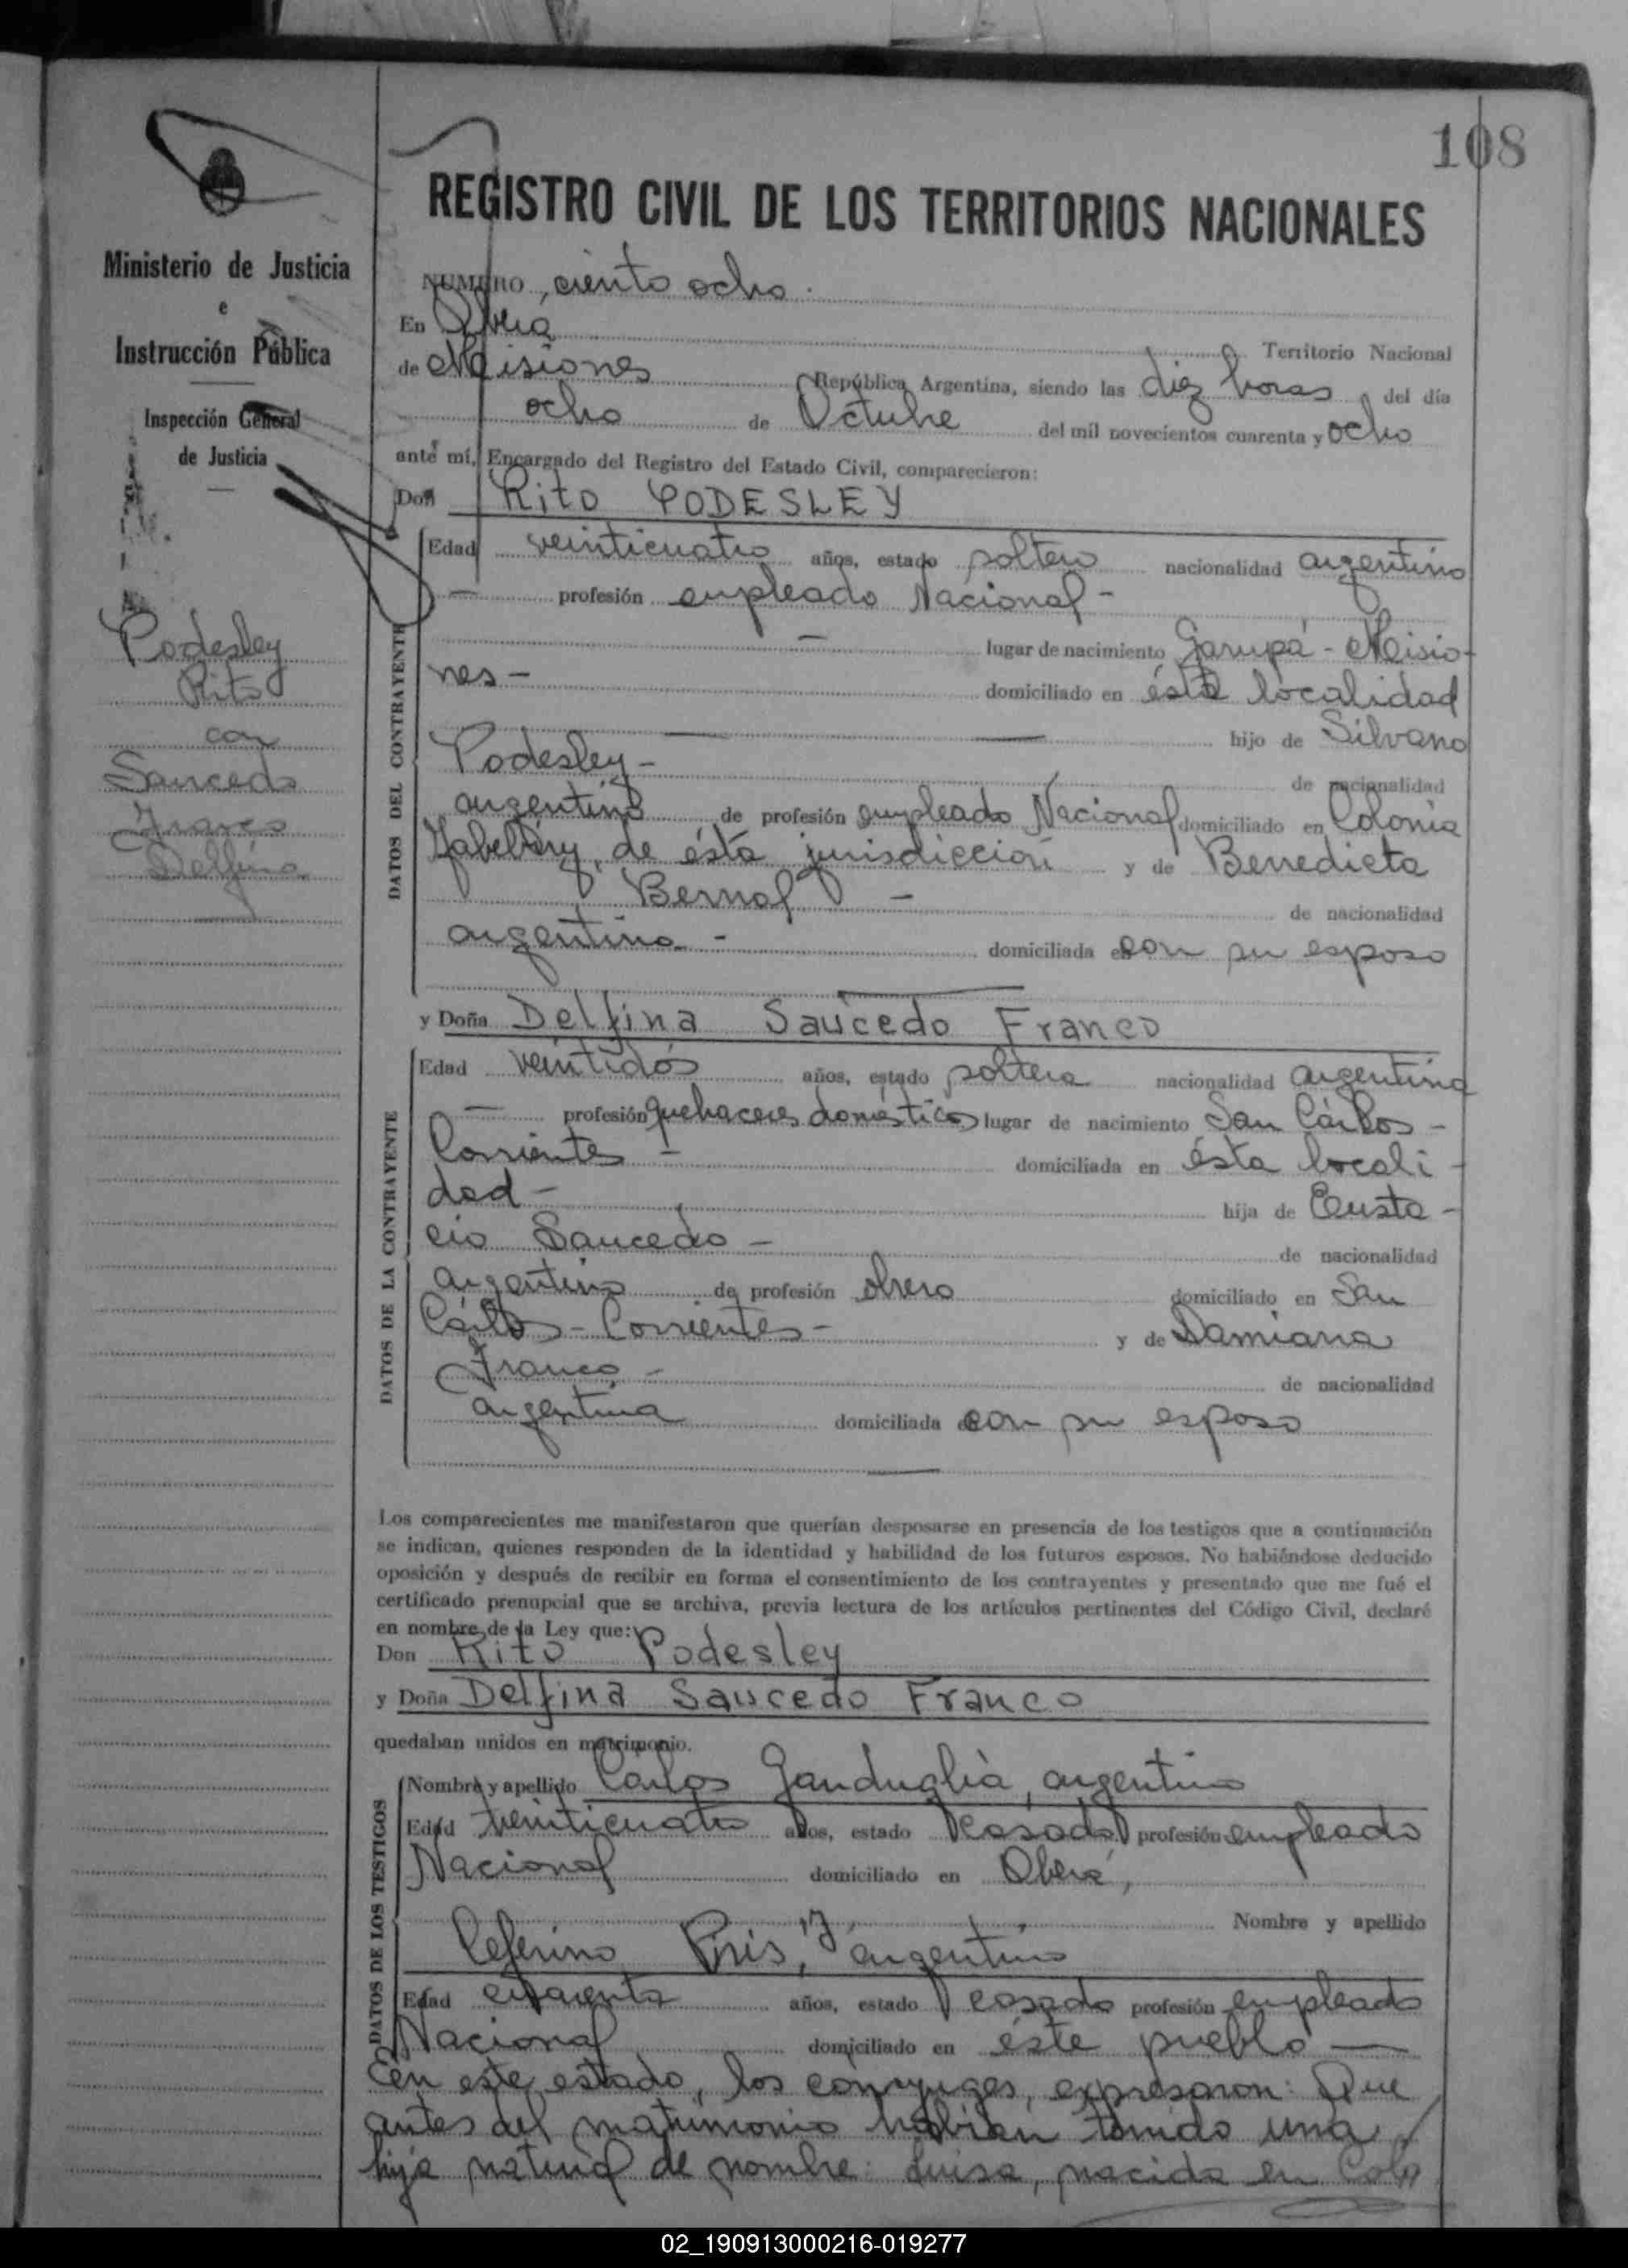 108
Ministerio de Justicia
e
Instrucción Pública
Inspección General
de Justicia
Podesley
Rito
con
Saucedo
Franco
Delfina
REGISTRO CIVIL DE LOS TERRITORIOS NACIONALES
NUMERO ciento ocho.
En Oberá Territorio Nacional
de Misiones República Argentina, siendo las diez horas del día
ocho de Octubre del mil novecientos cuarenta y ocho
ante mí, Encargado del Registro del Estado Civil, comparecieron:
Don Rito PODESLEY
DATOS DEL CONTRAYENTE
Edad veinticuatro años, estado soltero nacionalidad argentino
— profesión empleado Nacional -
— lugar de nacimiento Garupá - Misio-
nes - domiciliado en ésta localidad
— — hijo de Silvano
Podesley - de nacionalidad
argentino de profesión empleado Nacional domiciliado en Colonia
de ésta jurisdicción y de Benedicta
Bernal - de nacionalidad
argentina - domiciliada en con su esposo
y Doña Delfina Saucedo Franco
DATOS DE LA CONTRAYENTE
Edad veintidós años, estado soltera nacionalidad argentina
— profesión quehaceres domésticos lugar de nacimiento San Cárlos -
Corrientes - domiciliada en ésta locali-
dad - hija de Eusta-
cio Saucedo - de nacionalidad
argentino de profesión obrero domiciliado en San
Cárlos - Corrientes - y de Damiana
Franco - de nacionalidad
argentina domiciliada en con su esposo
Los comparecientes me manifestaron que querían desposarse en presencia de los testigos que a continuación
se indican, quienes responden de la identidad y habilidad de los futuros esposos. No habiéndose deducido
oposición y después de recibir en forma el consentimiento de los contrayentes y presentado que me fué el
certificado prenupcial que se archiva, previa lectura de los artículos pertinentes del Código Civil, declaré
en nombre de la Ley que:
Don Rito Podesley
y Doña Delfina Saucedo Franco
quedaban unidos en matrimonio.
DATOS DE LOS TESTIGOS
Nombre y apellido Carlos Ganduglia, argentino
Edad veinticuatro años, estado casado profesión empleado
Nacional domiciliado en Oberá,
Nombre y apellido
Ceferino argentino
Edad cuarenta años, estado casado profesión empleado
Nacional domiciliado en éste pueblo —
En este estado, los conyuges, expresaron: Que
antes del matrimonio habían tenido una
hija natural de nombre: Luisa, nacida en
02_190913000216-019277